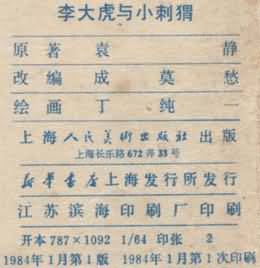 李大虎与小刺猬
原著袁 静
改编成莫愁
绘画丁纯一
上海人民美术出版社出版
上海长乐路672弄33号
新华书店上海发行所发行
江苏滨海印刷厂印刷
开本787×1092 1/64 印张 2
1984年1月第1版 1984年1月第1次印刷